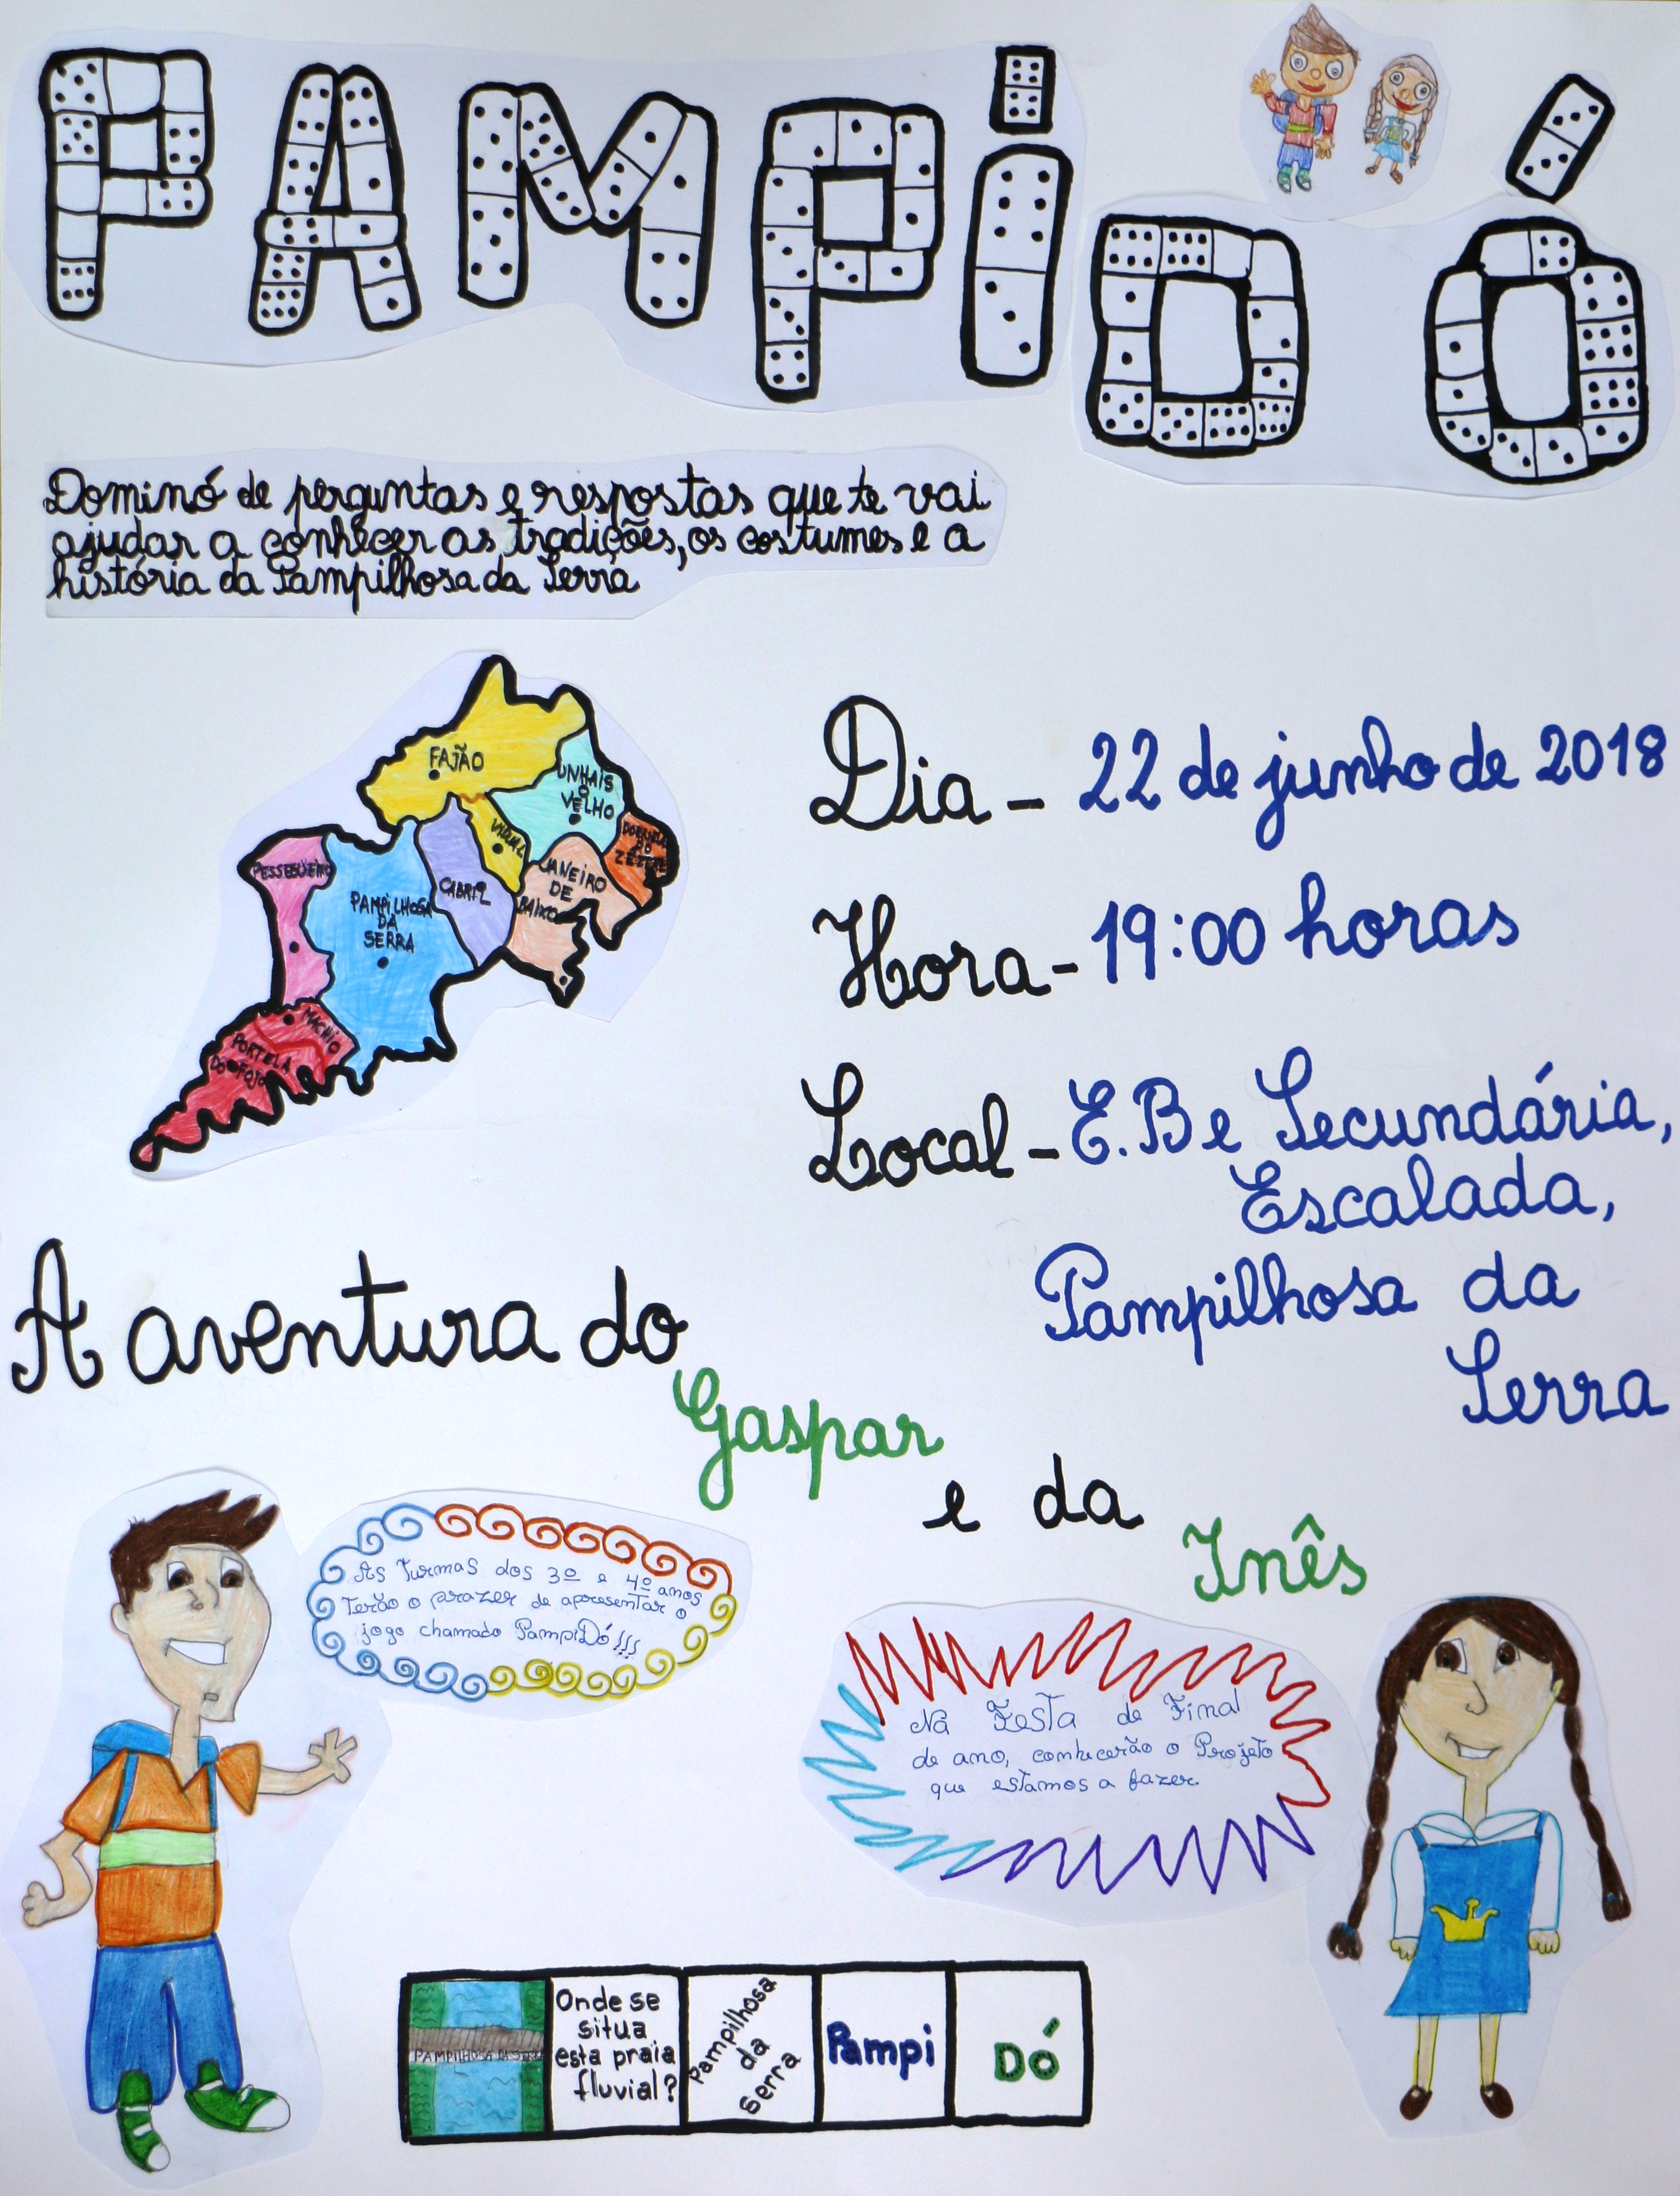 PAMPiDÓ
Dominó de perguntas e respostas que te vai
ajudar a conhecer as tradições, os costumes e a
história da Pampilhosa da Serra
FAJÃO
UNHAIS
O
VELHO
VIDUAL
DORNELAS
DO
ZÊZERE
JANEIRO
DE
BAIXO
CABRIL
PESSEGUEIRO
PAMPILHOSA
DA
SERRA
MACHIO
PORTELA
DO FOJO
Dia - 22 de junho de 2018
Hora - 19:00 horas
Local - E.B e Secundária,
Escalada,
Pampilhosa da
Serra
A aventura do
Gaspar
e da
Inês
As Turmas dos 3º e 4º anos
Terão o prazer de apresentar o
jogo chamado PampiDó!!!
Na Festa de Final
de ano, conhecerão o Projeto
que estamos a fazer.
PAMPILHOSA DA SERRA
Onde se
situa
esta praia
fluvial?
Pampilhosa
da
Serra
Pampi
Dó